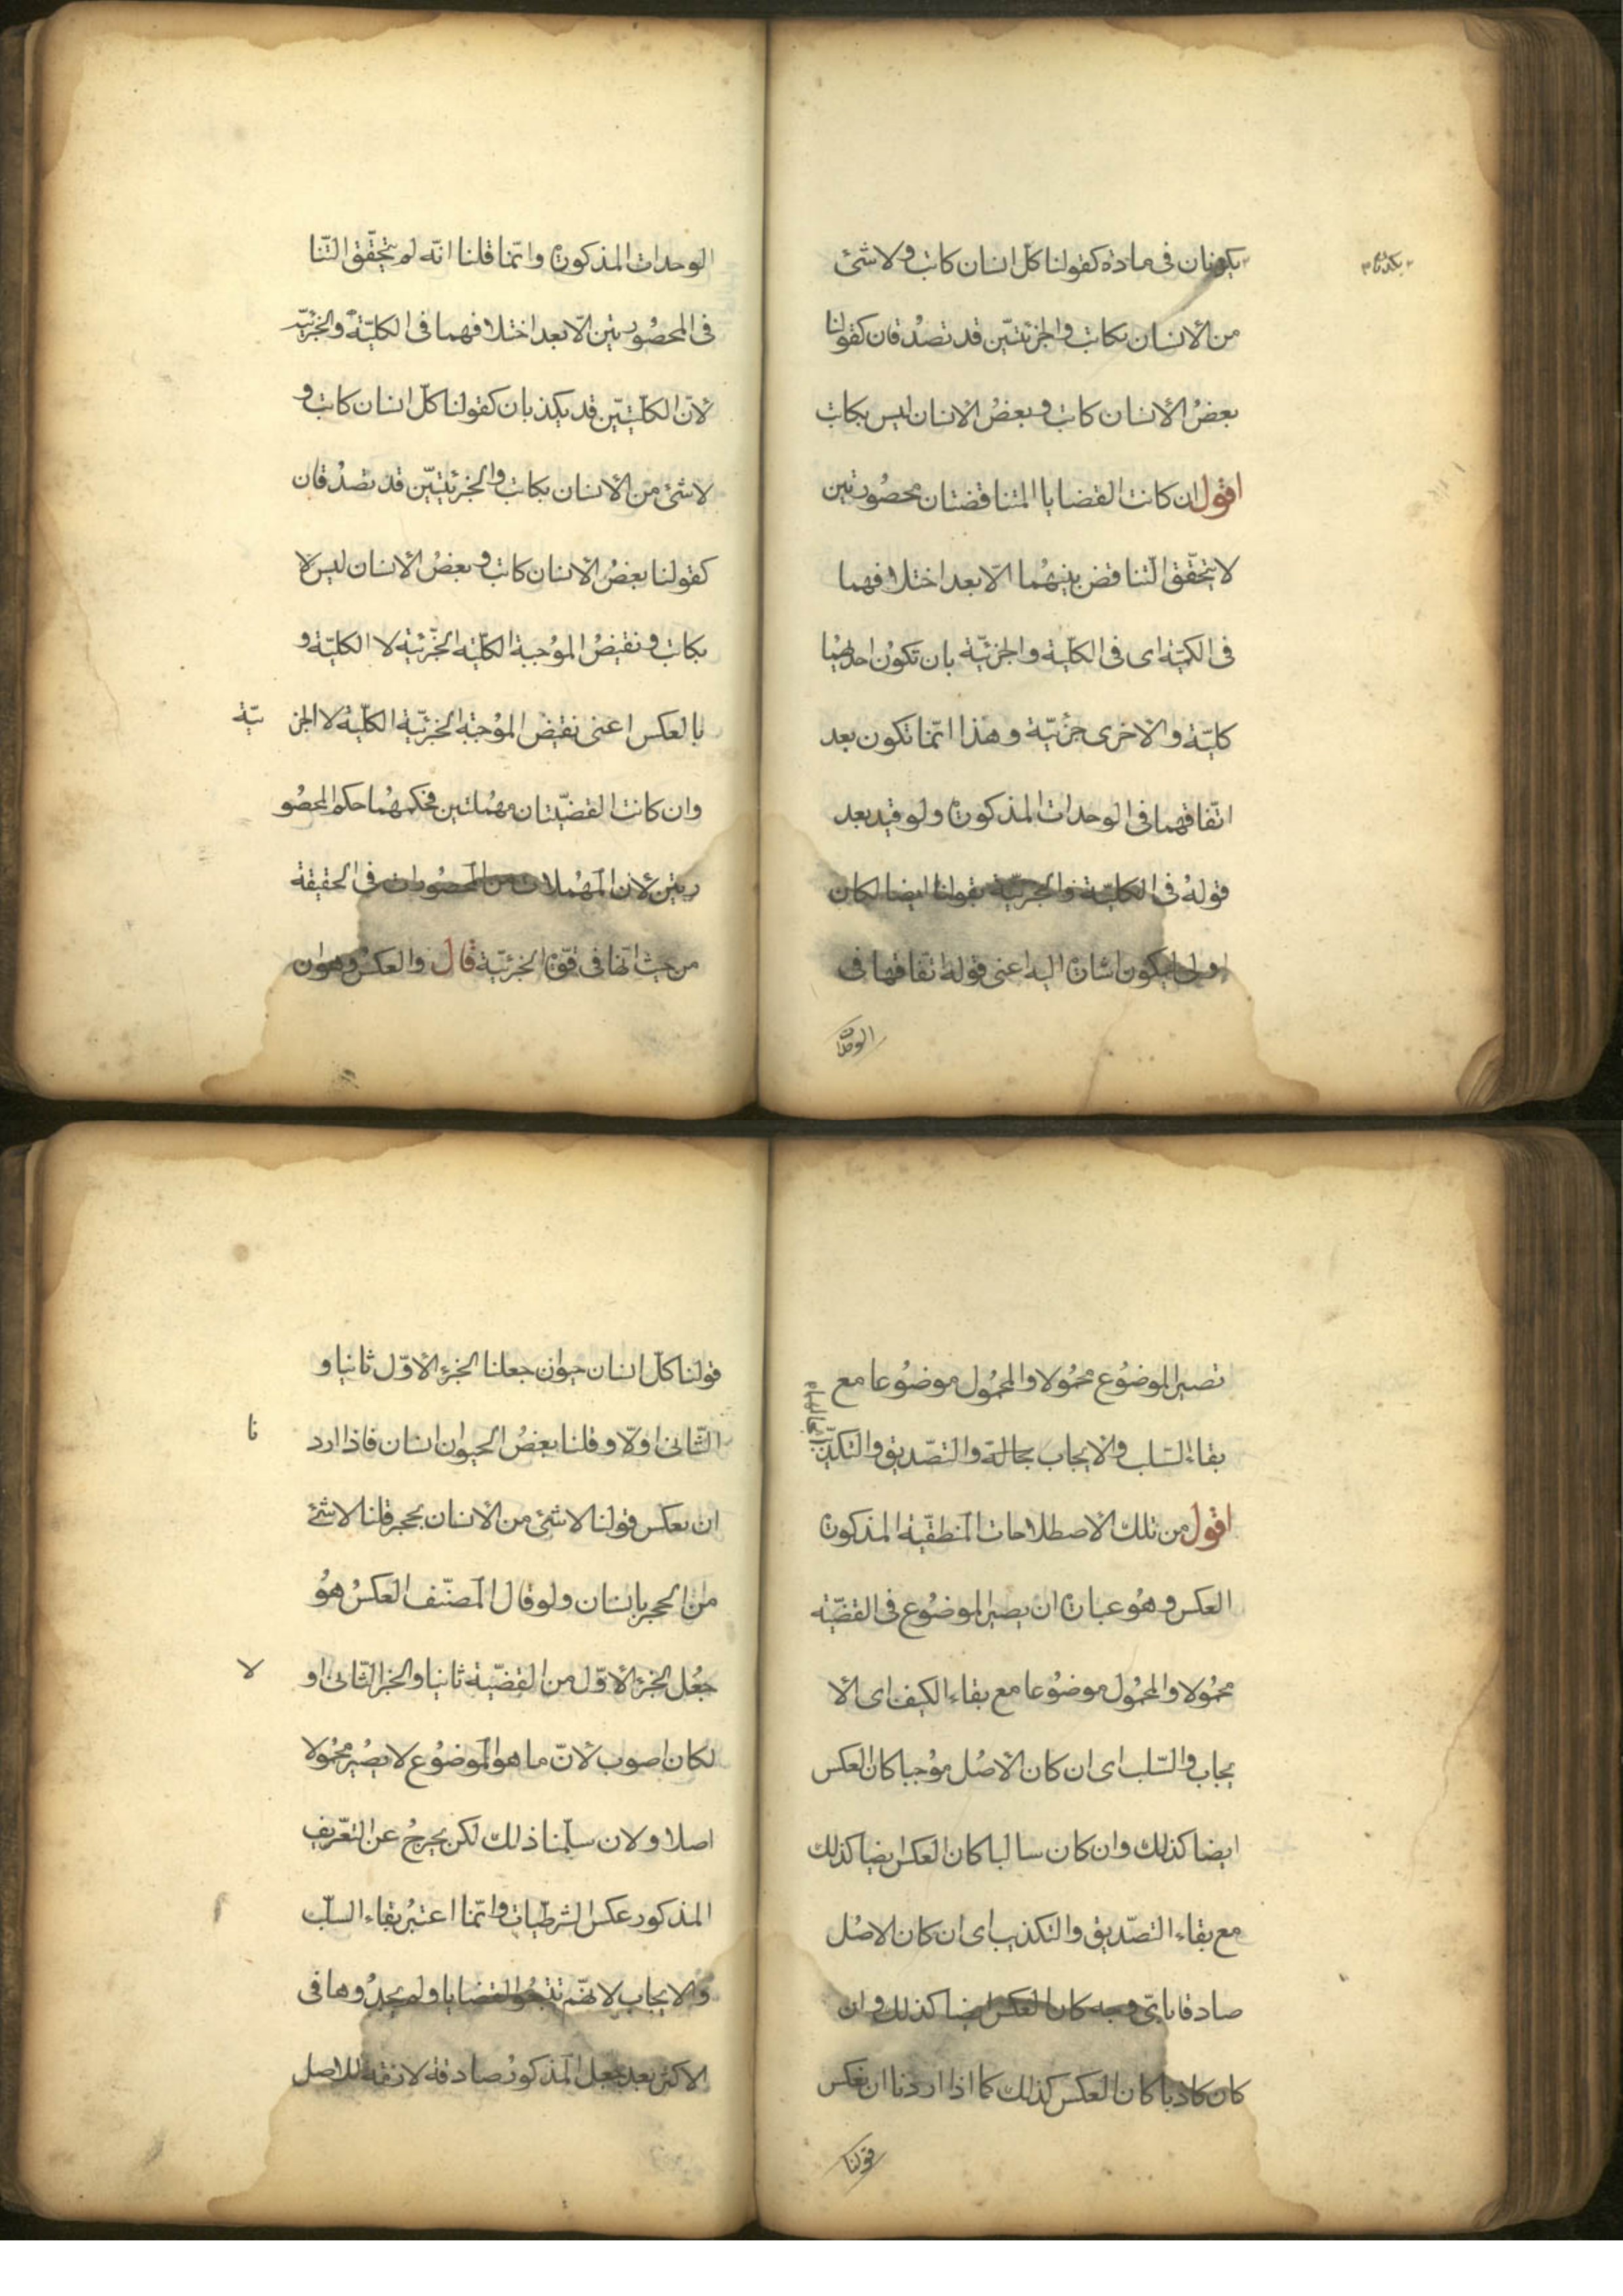 يكونان فى مادة كقولنا كل انسان كاتب ولا شئ
من الانسان بكاتب والجزئتيّن قد تصدُقان كقولنا
بعضُ الانسان كاتب وبعضُ الانسان ليس بكاتب
اقول ان كانت القضايا المتناقضتان محصُورتين
لا يتحقّق التناقض بينهُما الّا بعد اختلافهما
فى الكميّة اى فى الكليّة والجزئيّة بان تكوُن احديهُما
كليّة والاخرى جزئيّة وهذا انّما تكون بعد
اتّفاقهما فى الوحدات المذكورة ولو قيد بعد
قولهُ فى الكليّة والجزئيّة بقولنا ايضا لكان
اولى ليكون اشارة اليه اعنى قوله اتفاقهما فى
الوحدات
الوحدات المذكورة وانّما قلنا انّه لم يتحقّق التّنا
فى المحصُورتين الّا بعد اختلافهما فى الكليّة والجزئيّة
لانّ الكلّيتيّن قد يكذبان كقولنا كلّ انسان كاتب و
لا شئ من الانسان بكاتب والجزئيتيّن قد تصدُقان
كقولنا بعضُ الانسان كاتب وبعضُ الانسان ليس لا
بكاتب ونقيضُ المؤجبة الكليّة الجّزئية لا الكليّة و
بالعكس اعنى نقيض المؤجبة الجزئيّة الكليّة لا الجز ئيّة
وان كانت القضيّتان مهُملتين فحكمهُما حكم المحصُو
رتين لان المهُملات من المحصُورات فى الحقيقة
من حيث انّها فى قوّة الجزئيّة قال والعكسُ وهو ان
تصير الموضوُع محمُولا والمحمُول موضوُعا مع
بقاء السّلب والايجاب بحالة والتصّديق والتكذيب
بحالهما
اقول من تلك الاصطلاحات المنطقيّة المذكورة
العكس وهُو عبارة ان يصير الموضوُع فى القضيّة
محمُولا والمحمُول موضوُعا مع بقاء الكيف اى الا
يجاب والسّلب اى ان كان الاصُل مؤجبا كان العكس
ايضا كذلك وان كان سالبا كان العكس ايضا كذلك
مع بقاء التصّديق والتكذيب اى ان كان الاصُل
صادقا باىّ وجه كان العكس ايضا كذلك وان
كان كاذبا كان العكس كذلك كما اذا اردنا ان نعكس
قولنا
قولنا كلّ انسان حيوان جعلنا الجزء الاوّل ثانيا و
الثّانى اولّا وقلنا بعضُ الحيوان انسان فاذا ارد نا
ان نعكس قولنا لا شئ من الانسان بحجر قلنا لا شئ
من الحجر بانسان ولو قال المصنّف العكسُ هوُ
جعُل الجزء الاوّل من القضيّة ثانيا والجزء الثّانى او لا
لكان اصوب لانّ ما هو الموضوُع لا يصُير محمُولا
اصلا ولان سلّمنا ذلك لكن يخرجُ عن التّعريف
المذكور عكس الشرطيّات وانّما اعتبرُ بقاء السلّب
والايجاب لانهّم تتبعُوا القضايا ولم يجدُوها فى
الاكثر بعد جعل المذكورُ صادقة لازمة للاصل